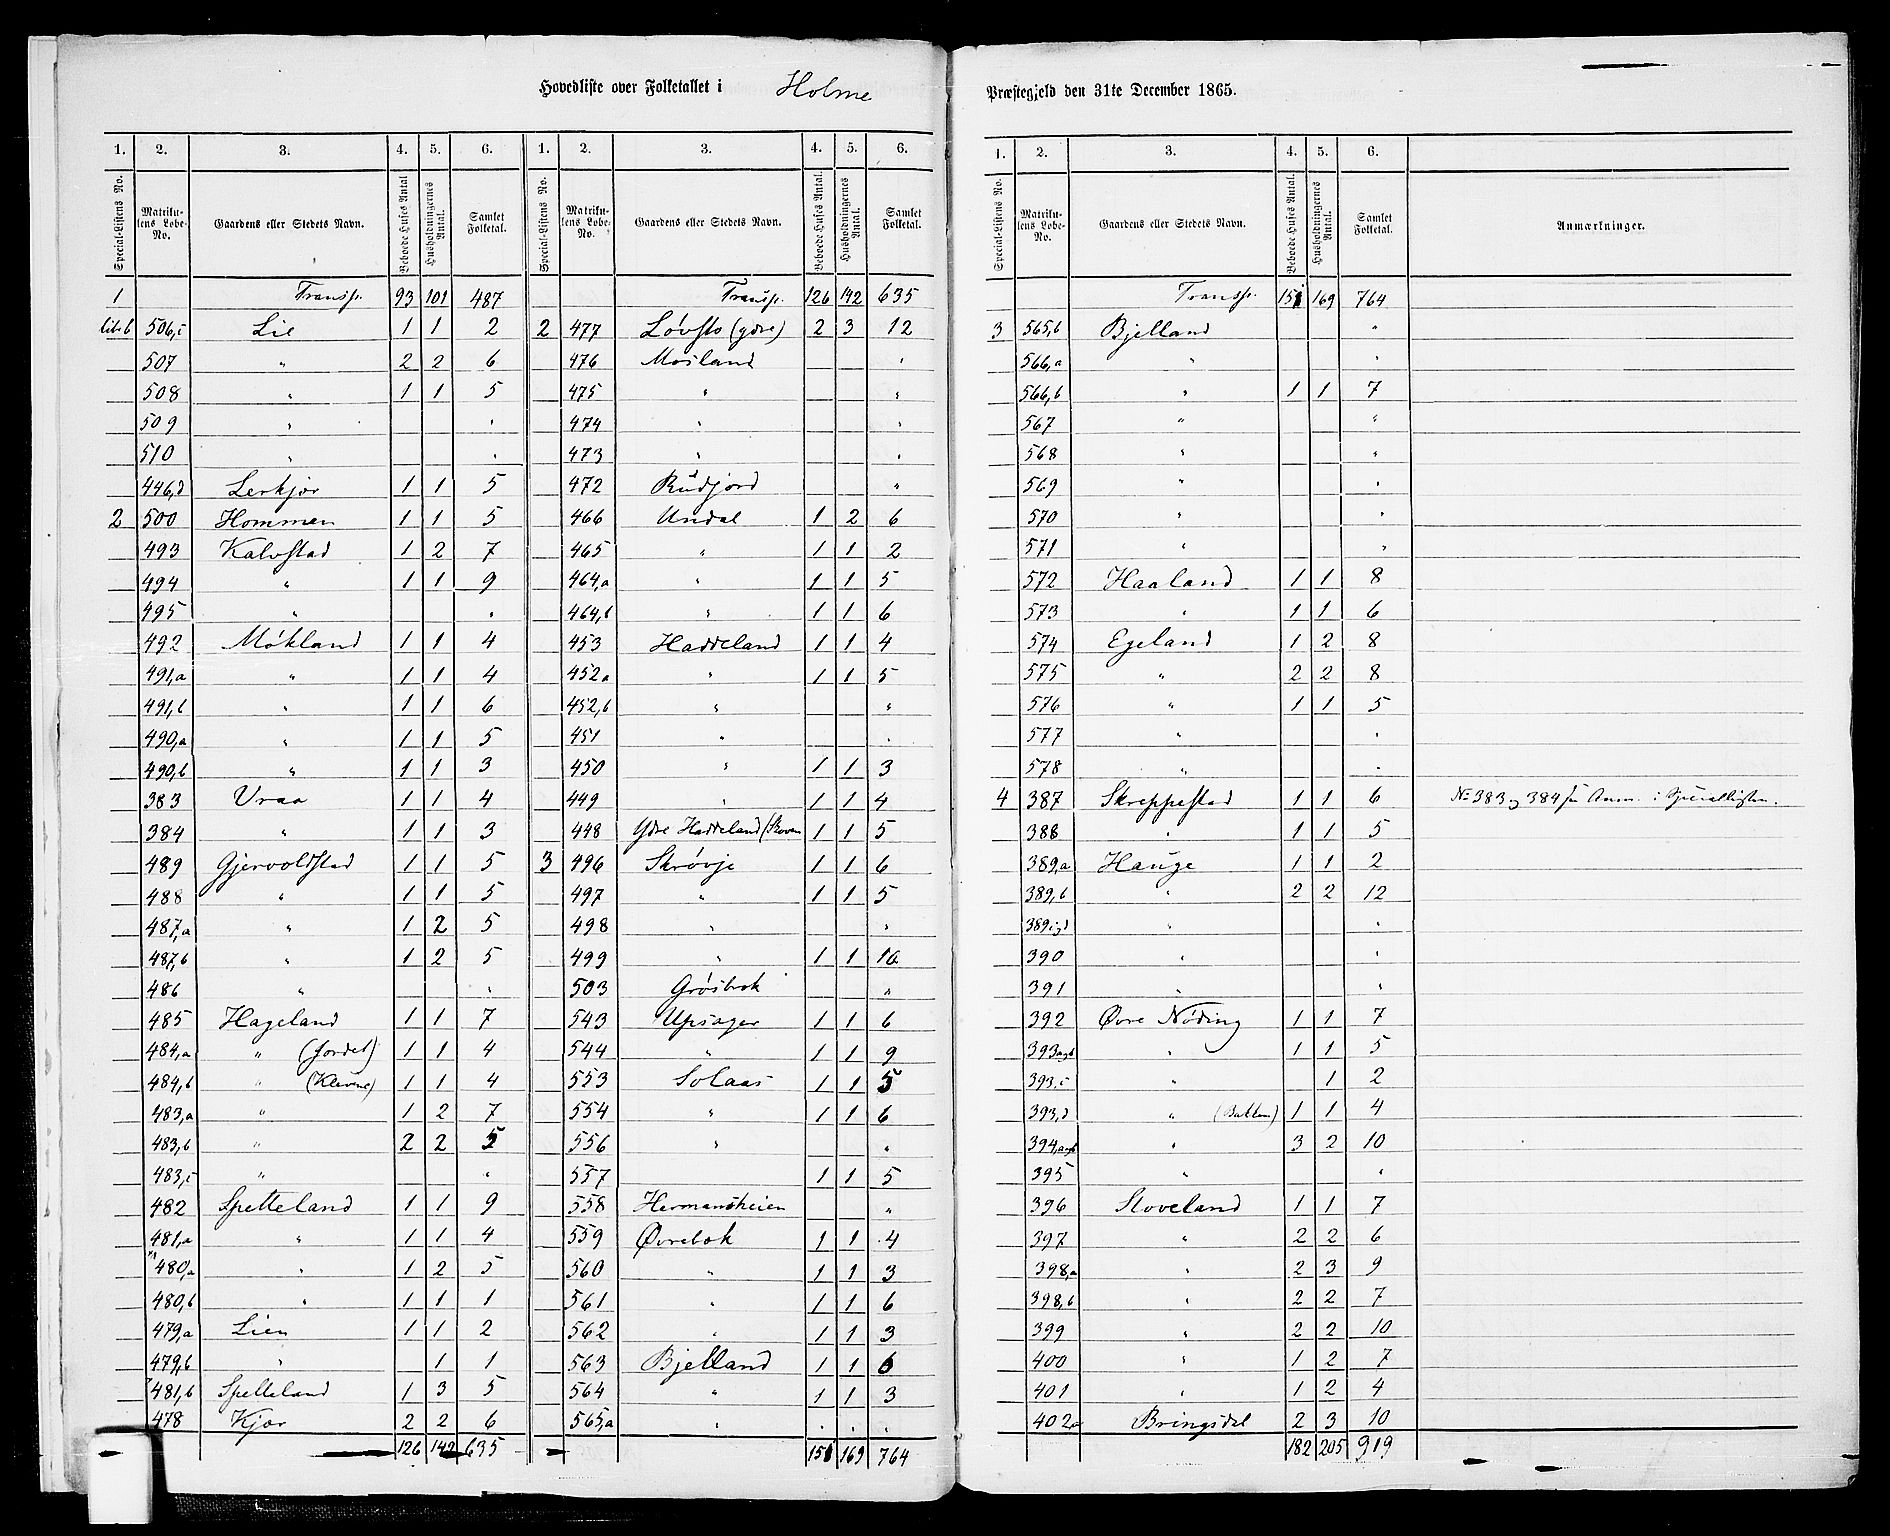 Hovedliste over Folketallet i Holme Præstegjeld den 31te December 1865.
1. 2. 3. 4. 5. 6. 1. 2. 3. 4. 5. 6.
Special-Listens No. Matrikulens Løbe-No. Gaardens eller Stedets Navn. Beboede Huses Antal. Husholdningernes Antal. Samlet Folketal. Special-Listens No. Matrikulens Løbe-No. Gaardens eller Stedets Navn. Beboede Huses Antal. Husholdningernes Antal. Samlet Folketal.
1 Transp. 93 101 487
litr b 506,c Lie 1 1 2
507 " 2 2 6
508 " 1 1 5
509 " "
510 " "
446,d Lerkjær 1 1 5
2 500 Hommen 1 1 5
493 Kalvstad 1 2 7
494 " 1 1 9
495 " "
492 Møkland 1 1 4
491,a " 1 1 4
491,b " 1 1 6
490,a " 1 1 5
490,b " 1 1 3
383 Vraa 1 1 4
384 " 1 1 3
489 Gjervoldstad 1 1 5
488 " 1 1 5
487,a " 1 2 5
487,b " 1 2 5
486 " "
485 Hageland 1 1 7
484,a " (Jordet) 1 1 4
484,b " (Klevne) 1 1 4
483,a " 1 2 7
483,b " 2 2 5
483,c " "
482 Spetteland 1 1 9
481,a " 1 1 4
480,a " 1 2 5
480,b " 1 1 1
479,a Lien 1 1 2
479,b " 1 1
481,b Spetteland 1 3 5
478 Kjær 2 2 6
126 142 635
Transp. 126 142 635
2 477 Løvsto (ydre) 2 3 12
476 Mosland "
475 " "
474 " "
473 " "
472 Rudjord "
466 Undal 1 2 6
465 " 1 1 2
464,a " 1 1 5
464,b " 1 1 6
453 Haddeland 1 1 4
452a " 1 1 5
452,b " "
451 " "
450 " 1 1 3
449 " 1 1 4
448 Ydre Haddeland (Skoven 1 1 5
3 496 Skrøvje 1 1 6
497 " 1 1 5
498 " "
499 " 1 1 10
503 Grøsbok "
543 Upsager 1 1 6
544 " 1 1 9
553 Solaas 1 1 5
554 " 1 1 6
556 " "
557 1 1 5
558 Hermansheien "
559 Øvrebok 1 1 4
560 " 1 1 3
561 " 1 1 6
562 " 1 1 3
563 Bjelland 1 1 6
564 " 1 1 3
565,a " "
151 169 764
1. 2. 3. 4. 5. 6.
Special-Listens No. Matrikulens Løbe-No. Gaardens eller Stedets Navn. Beboede Huses Antal. Husholdningernes Antal. Samlet Folketal. Anmærkninger.
Transp. 151 169 764
3 565,b Bjelland "
566,a " "
566,b " 1 1 7
567 " "
568 " "
569 " "
570 " "
571 " "
572 Haaland 1 1 8
573 " 1 1 6
574 Egeland 1 2 8
575 " 2 2 8
576 " 1 1 5
577 " "
578 " "
4 387 Skreppestad 1 1 6 No 383 og 384 se Anm. i Speciallisten.
388 " 1 1 5
389,a Hauge 1 1 2
389,b " 2 2 12
389 c,d " "
390 " "
391 " "
392 Øvre Nøding 1 1 7
393 a,b " 1 1 5
393,c " 1 2
393,d " (Bakken) 1 1 4
394,a,b " 3 2 10
395 " "
396 Stoveland 1 1 7
397 " 2 2 6
398,a " 2 3 9
398,b " 2 2 7
399 " 2 2 10
400 " 1 2 7
401 " 1 2 4
402a Bringsdal 2 3 10
182 205 919